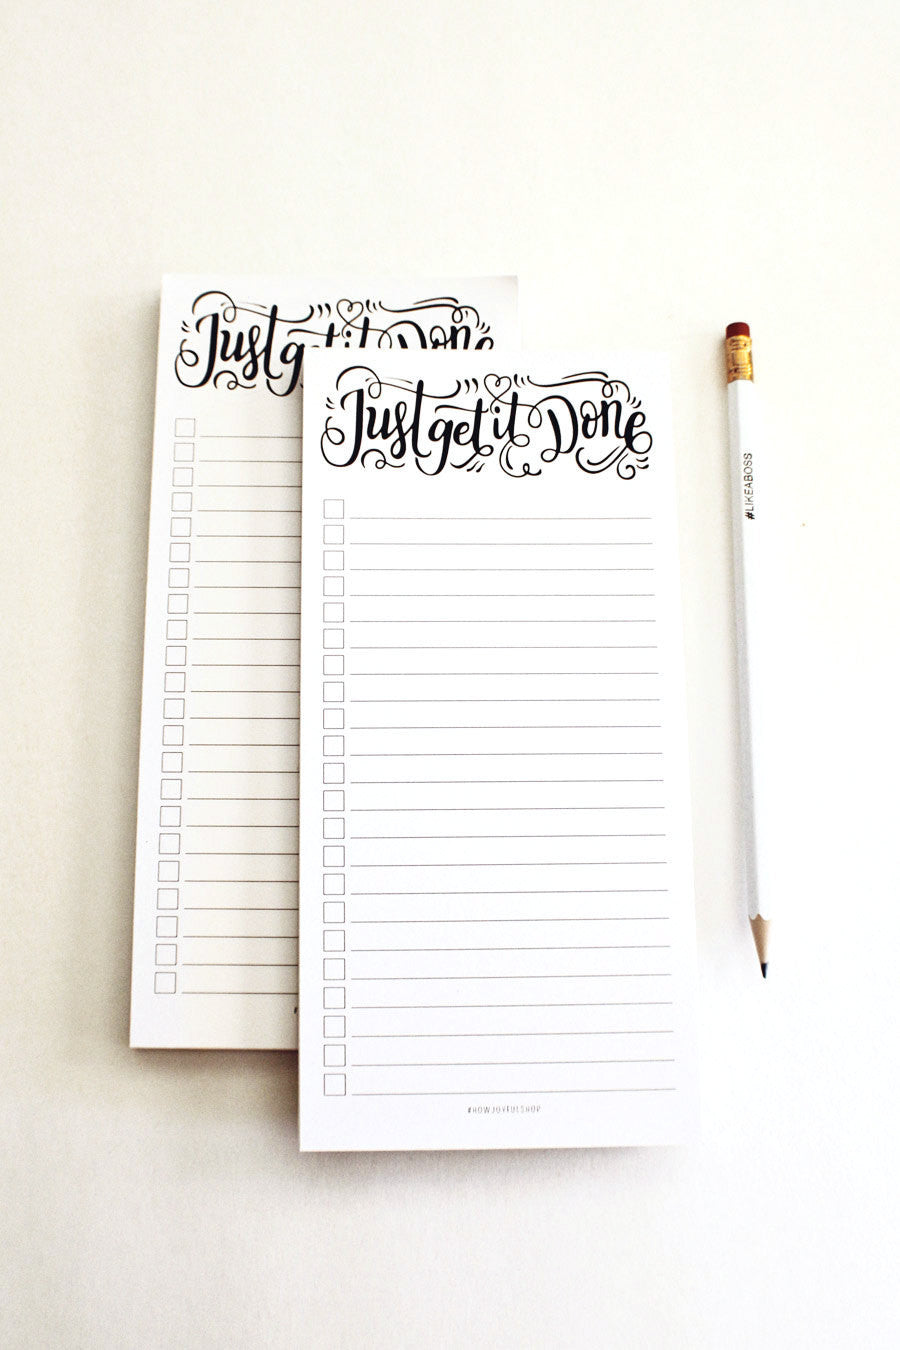 Just get it Done
Just get it Done
#HOWJOYFULSHOP
#LIKEABOSS